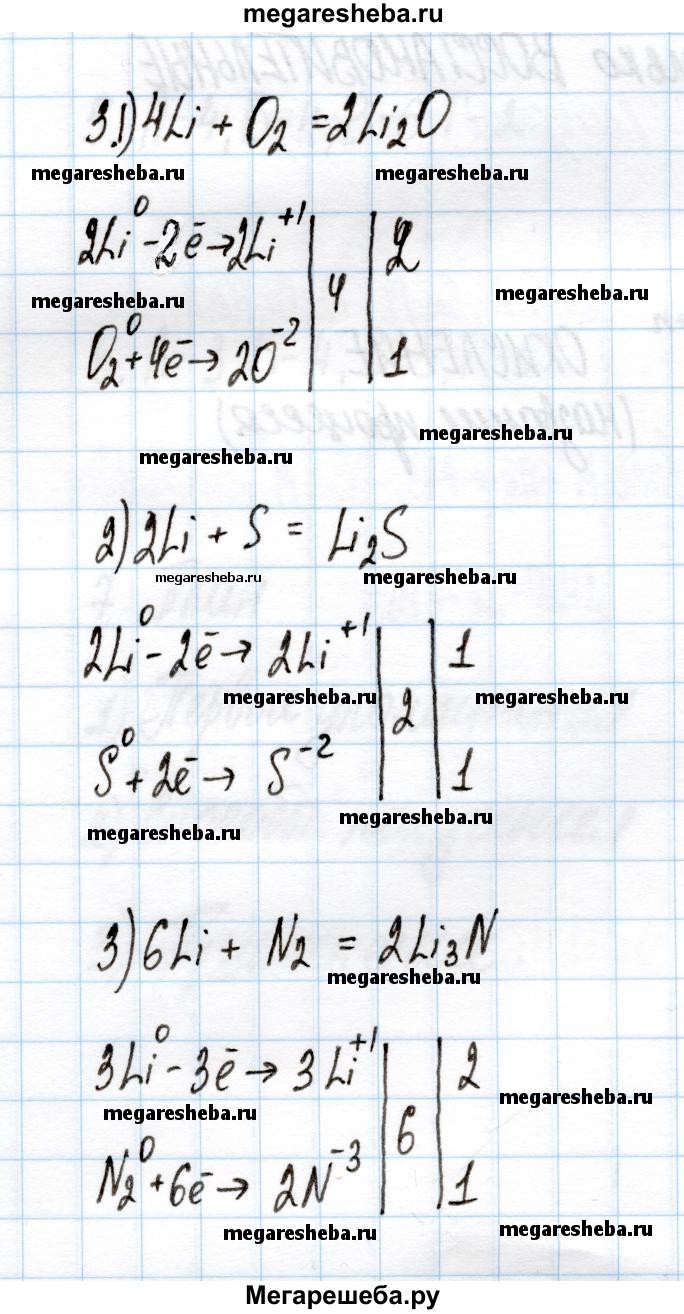 megaresheba.ru
3.1) 4Li + O₂ = 2Li₂O
megaresheba.ru megaresheba.ru
2Li⁰ - 2ē → 2Li⁺¹ | 4 | 2
megaresheba.ru megaresheba.ru
O₂⁰ + 4ē → 2O⁻² | 1
megaresheba.ru
megaresheba.ru
2) 2Li + S = Li₂S
megaresheba.ru megaresheba.ru
2Li⁰ - 2ē → 2Li⁺¹ | 2 | 1
megaresheba.ru megaresheba.ru
S⁰ + 2ē → S⁻² | 1
megaresheba.ru
megaresheba.ru
3) 6Li + N₂ = 2Li₃N
megaresheba.ru
3Li⁰ - 3ē → 3Li⁺¹ | 6 | 2
megaresheba.ru
megaresheba.ru
N₂⁰ + 6ē → 2N⁻³ | 1
megaresheba.ru megaresheba.ru
Мегарешеба.ру